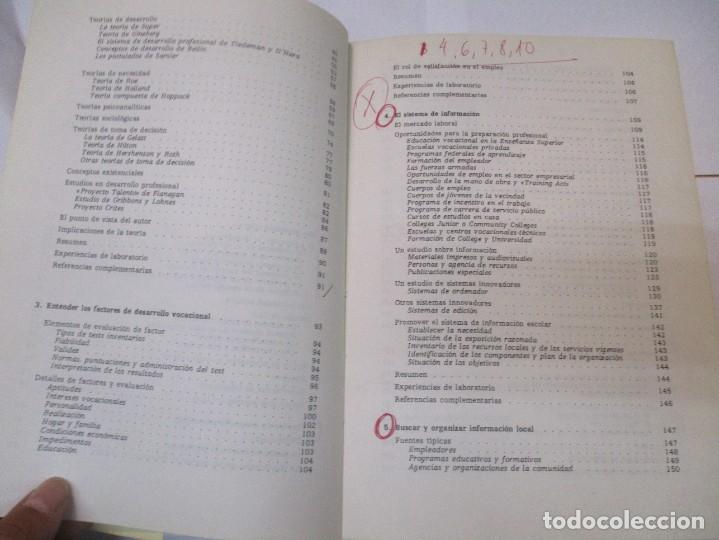 Teorías de desarrollo
La teoría de Super
Teoría de Ginzberg
El sistema de desarrollo profesional de Tiedeman y O'Hara
Conceptos de desarrollo de
Los postulados de
Teorías de necesidad
Teoría de Roe
Teoría de Holland
Teoría compuesta de Hoppock
Teorías psicoanalíticas
Teorías sociológicas
Teorías de toma de decisión
La teoría de Gelatt
Teoría de Hilton
Teoría de Hershenson y Roth
Otras teorías de toma de decisión
Conceptos existenciales
Estudios en desarrollo profesional
«Proyecto Talento» de Flanagan 81
Estudio de Gribbons y Lohnes
Proyecto Crites
El punto de vista del autor
Implicaciones de la teoría
Resumen
Experiencias de laboratorio 90
Referencias complementarias 91
91
3. Entender los factores de desarrollo vocacional 93
Elementos de evaluación de factor 94
Tipos de tests inventarios 94
Fiabilidad 94
Validez 94
Normas, puntuaciones y administración del test 94
Interpretación de los resultados 95
Detalles de factores y evaluación 96
Aptitudes 97
Intereses vocacionales 97
Personalidad 100
Realización 102
Hogar y familia 103
Condiciones económicas 103
Impedimentos 103
Educación 104
4, 6, 7, 8, 10
El rol de satisfacción en el empleo 104
Resumen 106
Experiencias de laboratorio 106
Referencias complementarias 107
X
4. El sistema de información 109
El mercado laboral 109
Oportunidades para la preparación profesional 114
Educación vocacional en la Enseñanza Superior 114
Escuelas vocacionales privadas 114
Programas federales de aprendizaje 115
Formación del empleador 116
Las fuerzas armadas 116
Oportunidades de empleo en el sector empresarial 116
Desarrollo de la mano de obra y «Training Act» 116
Cuerpos de empleo 117
Cuerpos de jóvenes de la vecindad 117
Programa de incentivo en el trabajo 117
Programa de carrera de servicio público 118
Cursos de estudios en casa 118
Colleges Junior o Community Colleges 118
Escuelas y centros vocacionales técnicos 119
Formación de College y Universidad 119
Un estudio sobre información 120
Materiales impresos y audiovisuales 120
Personas y agencia de recursos 123
Publicaciones especiales 128
Un estudio de sistemas innovadores 129
Sistemas de ordenador 130
Otros sistemas innovadores 137
Sistemas de edición 141
Promover el sistema de información escolar 142
Establecer la necesidad 142
Situación de la exposición razonada 142
Inventario de los recursos locales y de los servicios vigentes 143
Identificación de los componentes y plan de la organización 143
Situación de los objetivos 144
Resumen 144
Experiencias de laboratorio 145
Referencias complementarias 146
5. Buscar y organizar información local 147
Fuentes típicas 147
Empleadores 148
Programas educativos y formativos 149
Agencias y organizaciones de la comunidad 150
todocoleccion.net